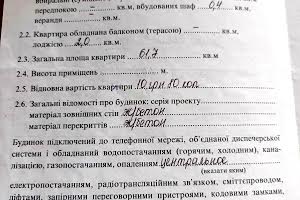 передпокою — кв.м, вбудованих шаф 0,4 кв.м
веранди кв.м.
2.2. Квартира обладнана балконом (терасою)
лоджією 2,0 кв.м.
2.3. Загальна площа квартири 61,7 кв.м.
2.4. Висота приміщень м.
2.5. Відновна вартість квартири 10 грн 10 коп
2.6. Загальні відомості про будинок: серія проекту
матеріал зовнішніх стін ж/бетон
матеріал перекриттів ж/бетон
Будинок підключений до телефонної мережі, об'єднаної диспетчерської
системи і обладнаний водопостачанням (горячим, холодним), кана-
лізацією, газопостачанням, опаленням центральное
(вказати яким)
електропостачанням, радіотрансляційним зв'язком, сміттєпроводом,
ліфтами, запірними переговорними пристроями, кодовими замками,